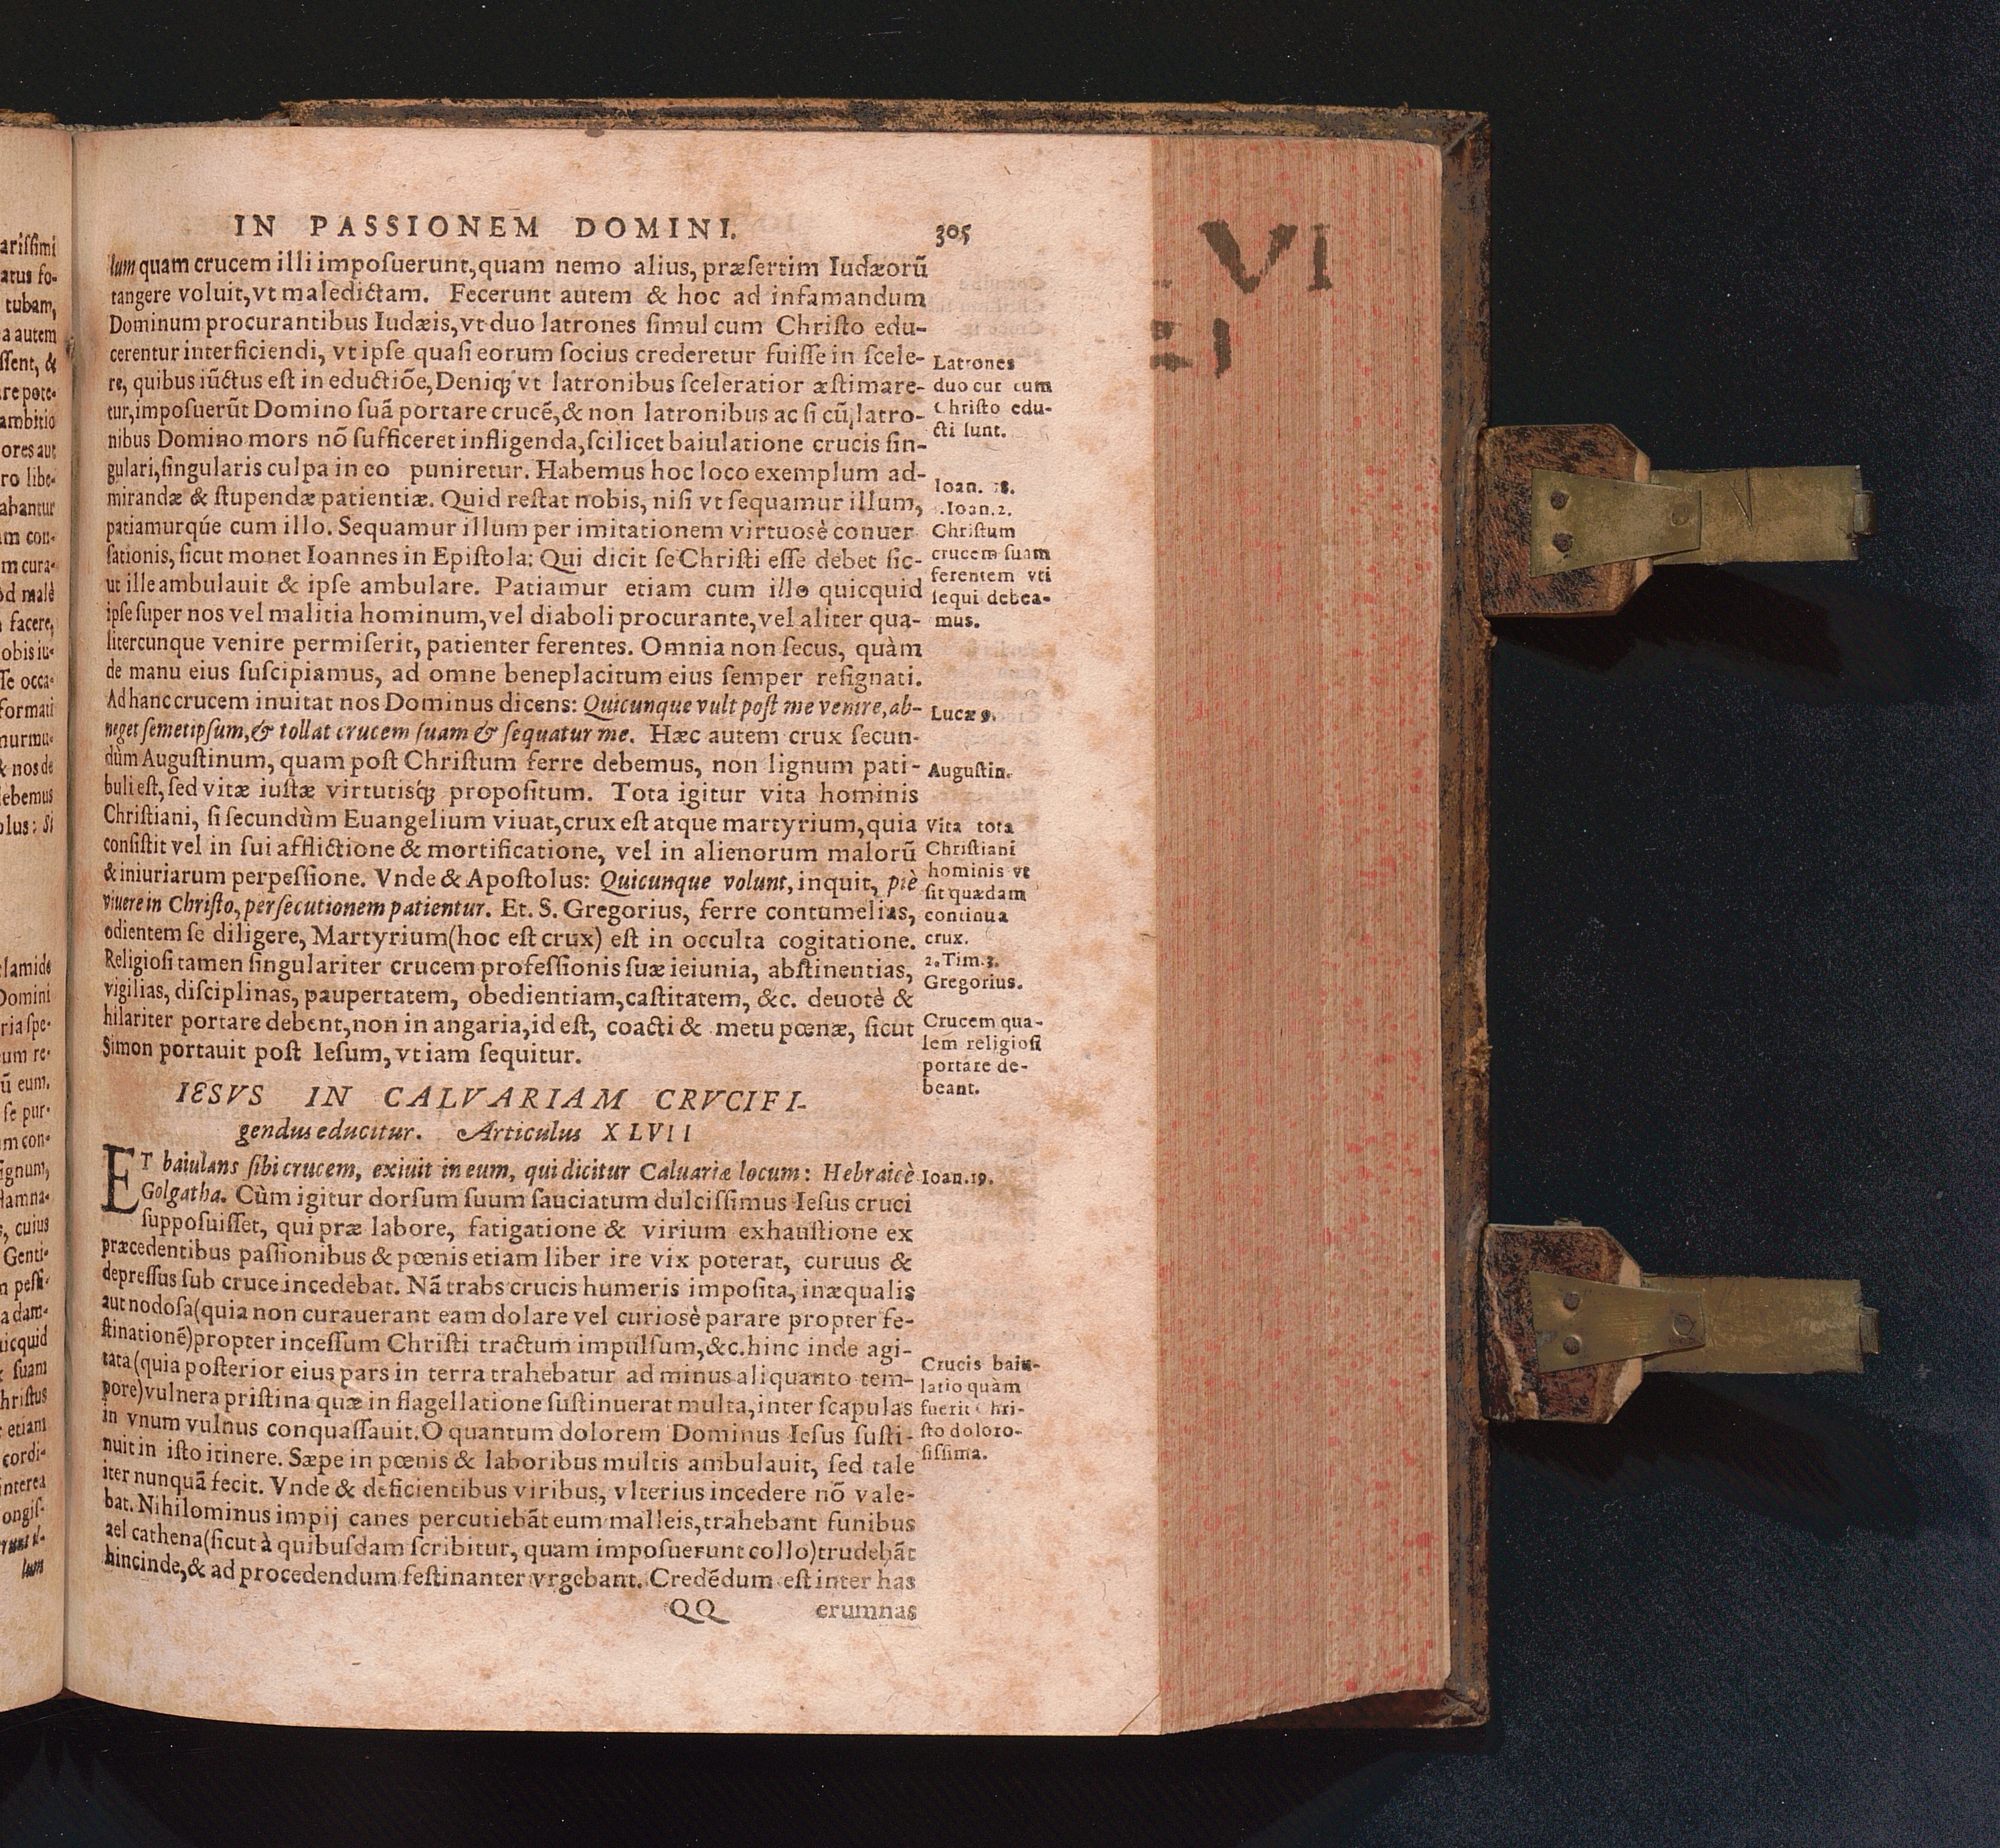 IN PASSIONEM DOMINI. 305
lum quam crucem illi imposuerunt, quam nemo alius, præsertim Iudæorũ
tangere voluit, vt maledictam. Fecerunt autem & hoc ad infamandum
Dominum procurantibus Iudæis, vt duo latrones simul cum Christo edu-
cerentur interficiendi, vt ipse quasi eorum socius crederetur fuisse in scele-
re, quibus iũctus est in eductiõe, Deniqꝫ vt latronibus sceleratior æstimare-
tur, imposuerũt Domino suã portare crucẽ, & non latronibus ac si cũ latro-
nibus Domino mors nõ sufficeret infligenda, scilicet baiulatione crucis sin-
gulari, singularis culpa in eo puniretur. Habemus hoc loco exemplum ad-
mirandæ & stupendæ patientiæ. Quid restat nobis, nisi vt sequamur illum,
patiamurqúe cum illo. Sequamur illum per imitationem virtuosè conuer
sationis, sicut monet Ioannes in Epistola: Qui dicit se Christi esse debet sic-
ut ille ambulauit & ipse ambulare. Patiamur etiam cum illo quicquid
ipse super nos vel malitia hominum, vel diaboli procurante, vel aliter qua-
litercunque venire permiserit, patienter ferentes. Omnia non secus, quàm
de manu eius suscipiamus, ad omne beneplacitum eius semper resignati.
Ad hanc crucem inuitat nos Dominus dicens: Quicunque vult post me venire, ab-
neget semetipsum, & tollat crucem suam & sequatur me. Hæc autem crux secun-
dùm Augustinum, quam post Christum ferre debemus, non lignum pati-
buli est, sed vitæ iustæ virtutisq́ꝫ propositum. Tota igitur vita hominis
Christiani, si secundùm Euangelium viuat, crux est atque martyrium, quia
consistit vel in sui afflictione & mortificatione, vel in alienorum malorũ
& iniuriarum perpessione. Vnde & Apostolus: Quicunque volunt, inquit, piè
viuere in Christo, persecutionem patientur. Et. S. Gregorius, ferre contumelias,
odientem se diligere, Martyrium (hoc est crux) est in occulta cogitatione.
Religiosi tamen singulariter crucem professionis suæ ieiunia, abstinentias,
vigilias, disciplinas, paupertatem, obedientiam, castitatem, &c. deuotè &
hilariter portare debent, non in angaria, id est, coacti & metu pœnæ, sicut
Simon portauit post Iesum, vt iam sequitur.
IESVS IN CALVARIAM CRVCIFI-
gendus educitur. Articulus XLVII
ET baiulans sibi crucem, exiuit in eum, qui dicitur Caluariæ locum: Hebraicè
Golgatha. Cùm igitur dorsum suum sauciatum dulcissimus Iesus cruci
supposuisset, qui præ labore, fatigatione & virium exhaustione ex
præcedentibus passionibus & pœnis etiam liber ire vix poterat, curuus &
depressus sub cruce incedebat. Nã trabs crucis humeris imposita, inæqualis
aut nodosa (quia non curauerant eam dolare vel curiosè parare propter fe-
stinationẽ) propter incessum Christi tractum impulsum, &c. hinc inde agi-
tata (quia posterior eius pars in terra trahebatur ad minus aliquanto tem-
pore) vulnera pristina quæ in flagellatione sustinuerat multa, inter scapulas
in vnum vulnus conquassauit. O quantum dolorem Dominus Iesus susti-
nuit in isto itinere. Sæpe in pœnis & laboribus multis ambulauit, sed tale
iter nunquã fecit. Vnde & deficientibus viribus, vlterius incedere nõ vale-
bat. Nihilominus impij canes percutiebãt eum malleis, trahebant funibus
ael cathena (sicut à quibusdam scribitur, quam imposuerunt collo) trudebãt
hincinde, & ad procedendum festinanter vrgebant. Credẽdum est inter has
QQ erumnas
Latrones
duo cur cum
Christo edu-
cti sunt.
Ioan. 18.
1. Ioan. 2.
Christum
crucem suam
ferentem vti
sequi debea-
mus.
Lucæ 9.
Augustin.
Vita tota
Christiani
hominis vt
sit quædam
continua
crux.
2. Tim. 3.
Gregorius.
Crucem qua-
lem religiosi
portare de-
beant.
Ioan. 19.
Crucis baiu-
latio quàm
fuerit Chri-
sto doloro-
sissima.
VI
arissimi
atus fo-
tubam,
a autem
ssent, &
re pote-
ambitio
ores aut
ro libe-
abantur
m con-
m cura-
od malè
facere,
obis iu-
se occa-
formati
murmu-
& nos de
debemus
olus: Si
lamide
Domini
ria spe-
um re-
ũ eum.
se pur-
m con-
ignum,
damna-
s, cuius
Genti-
n pessi-
a dam-
uicquid
suam
hristus
etiam
cordi-
interea
ongis-
lum